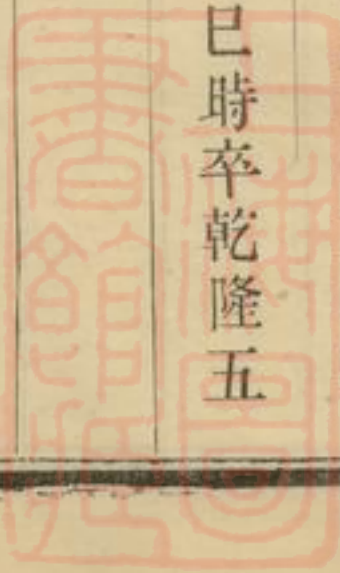 巳時卒乾隆五